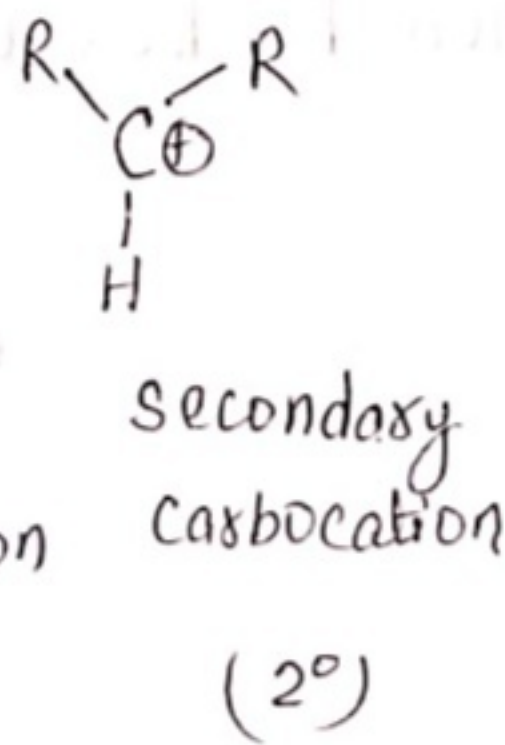 R R
C⊕
H
secondary
on carbocation
(2°)